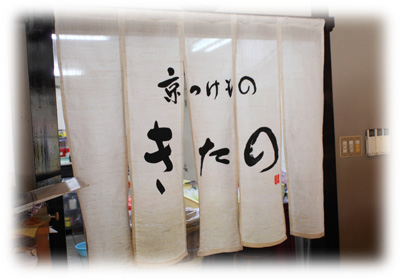 京つけもの
きたの